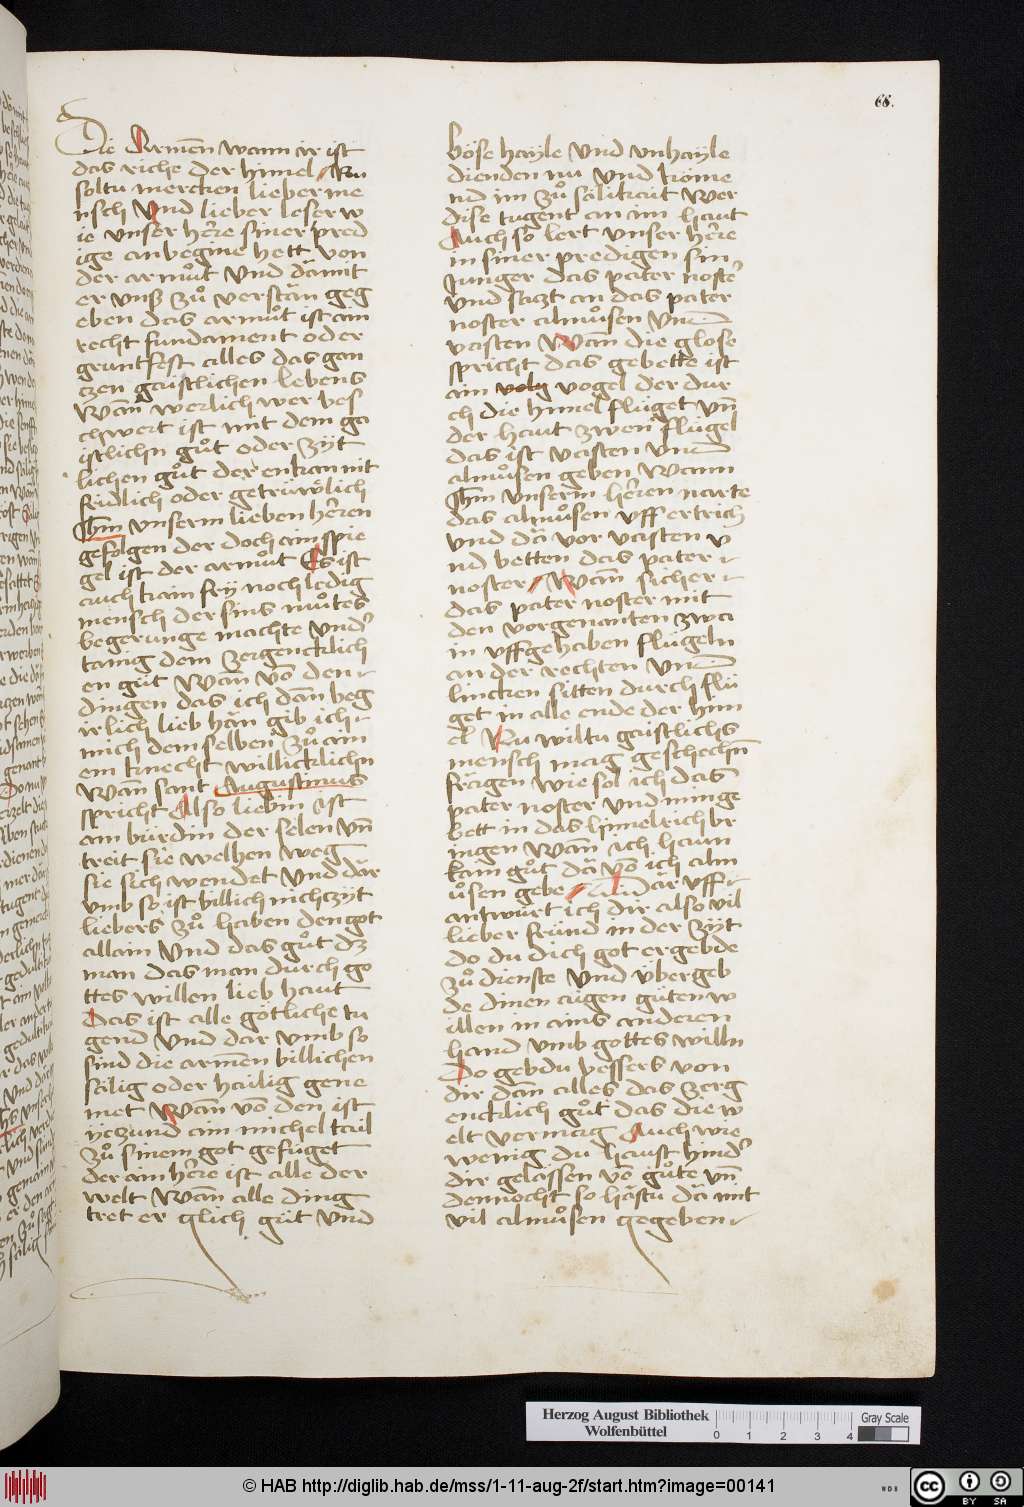 66.
Die Armen wann ir ist
das riche der himel Nu
soltu mercken lieber me
nsch Vnd lieber leser w
ie vnser here siner pred
ige anbegine hett von
der armuͦt Vnd damit
er vnß zuͦ verstän geg
eben das armuͦt ist ain
recht fundament oder
gruntfest alles das gan
czen gaistlichen lebens
Wan̄ werlich wer bes
chwert ist mit dem ga
istlichn guͦt oder zÿt
lichen guͦt der enkan nit
fridlich oder getrüwlich
Jhm vnserm lieben heren
gefolgen der doch ain spie
gel ist der armuͦt Es ist
auch kain frÿ noch ledig
mensch der sins muͦtes
begerunge machte Vnder
tanig dem zergencklich
en guͦt Wan̄ vō den
dingen das ich dan̄ beg
irlich lieb hän gib ich
mich dem selben zuͦ aim
em knecht willicklichn
Wan̄ sant Augustinus
spricht Also liebin ist
ain bürdin der selen vn̄
treit sie welhen weg
sie sich wendet Vnd dar
vmb so ist billich nichczÿt
liebers zuͦ haben den got
allain Vnd das guͦt dz
man das man durch go
ttes willen lieb haut
Das ist alle götliche tu
gend Vnd dar vmb so
sind die armen billichen
sälig oder hailig gene
met Wan̄ vō den ist
ÿeczund ain michel tail
zuͦ sinem got gefüget
der ain here ist alle der
welt Wan̄ alle ding
tret er glich guͦt Vnd
böse hayle Vnd vnhayle
dienden nu Vnd kome
nd im zuͦ sälikait wer
dise tugent an im haut
Auch so lert vnser here
in siner predigen sin
Junger das pater noster
vnd saczt an das pater
noster almuͦsen Vnd
vasten Wan̄ die glose
spricht das gebette ist
ain vogel der dur
ch die himel flüget vn̄
der haut zwen flügel
das ist vasten Vnd
almuͦsen geben Wann
Jhm vnserm heren narte
das almuͦsen vff ertrich
vnd dä vor vasten v
nd betten das pater
noster Wan̄ sicher
das pater noster mit
den vorgenanten zwa
in vffgehaben flügeln
an der rechten Vnd
lincken sitten durch flü
get in alle ende der him
el Nu wiltu gaistlichs
mensch mag geschechn̄
frägen wie sol ich das
pater noster vnd minge
bett in das himelrich br
ingen Wan̄ ich haun
kain guͦt dä vō ich alm
uͦsen gebe Dar vff
antwürt ich dir also vil
lieber fründ in der zÿt
do du dich got ergebde
zuͦ dienste Vnd vbergeb
de dinen aigen guͦten w
illen in ains anderen
hand vmb gottes willn
Do gebdu bessers von
dir dan̄ alles das zerg
encklich guͦt das die w
elt vermag Auch wie
wenig du haust hinder
dir gelässen vō guͦte vn̄
dennocht so hästu dä mit
vil almuͦsen gegeben
Herzog August Bibliothek
Wolfenbüttel
0 1 2 3 4
Gray Scale
© HAB http://diglib.hab.de/mss/1-11-aug-2f/start.htm?image=00141
WDB
cc BY SA